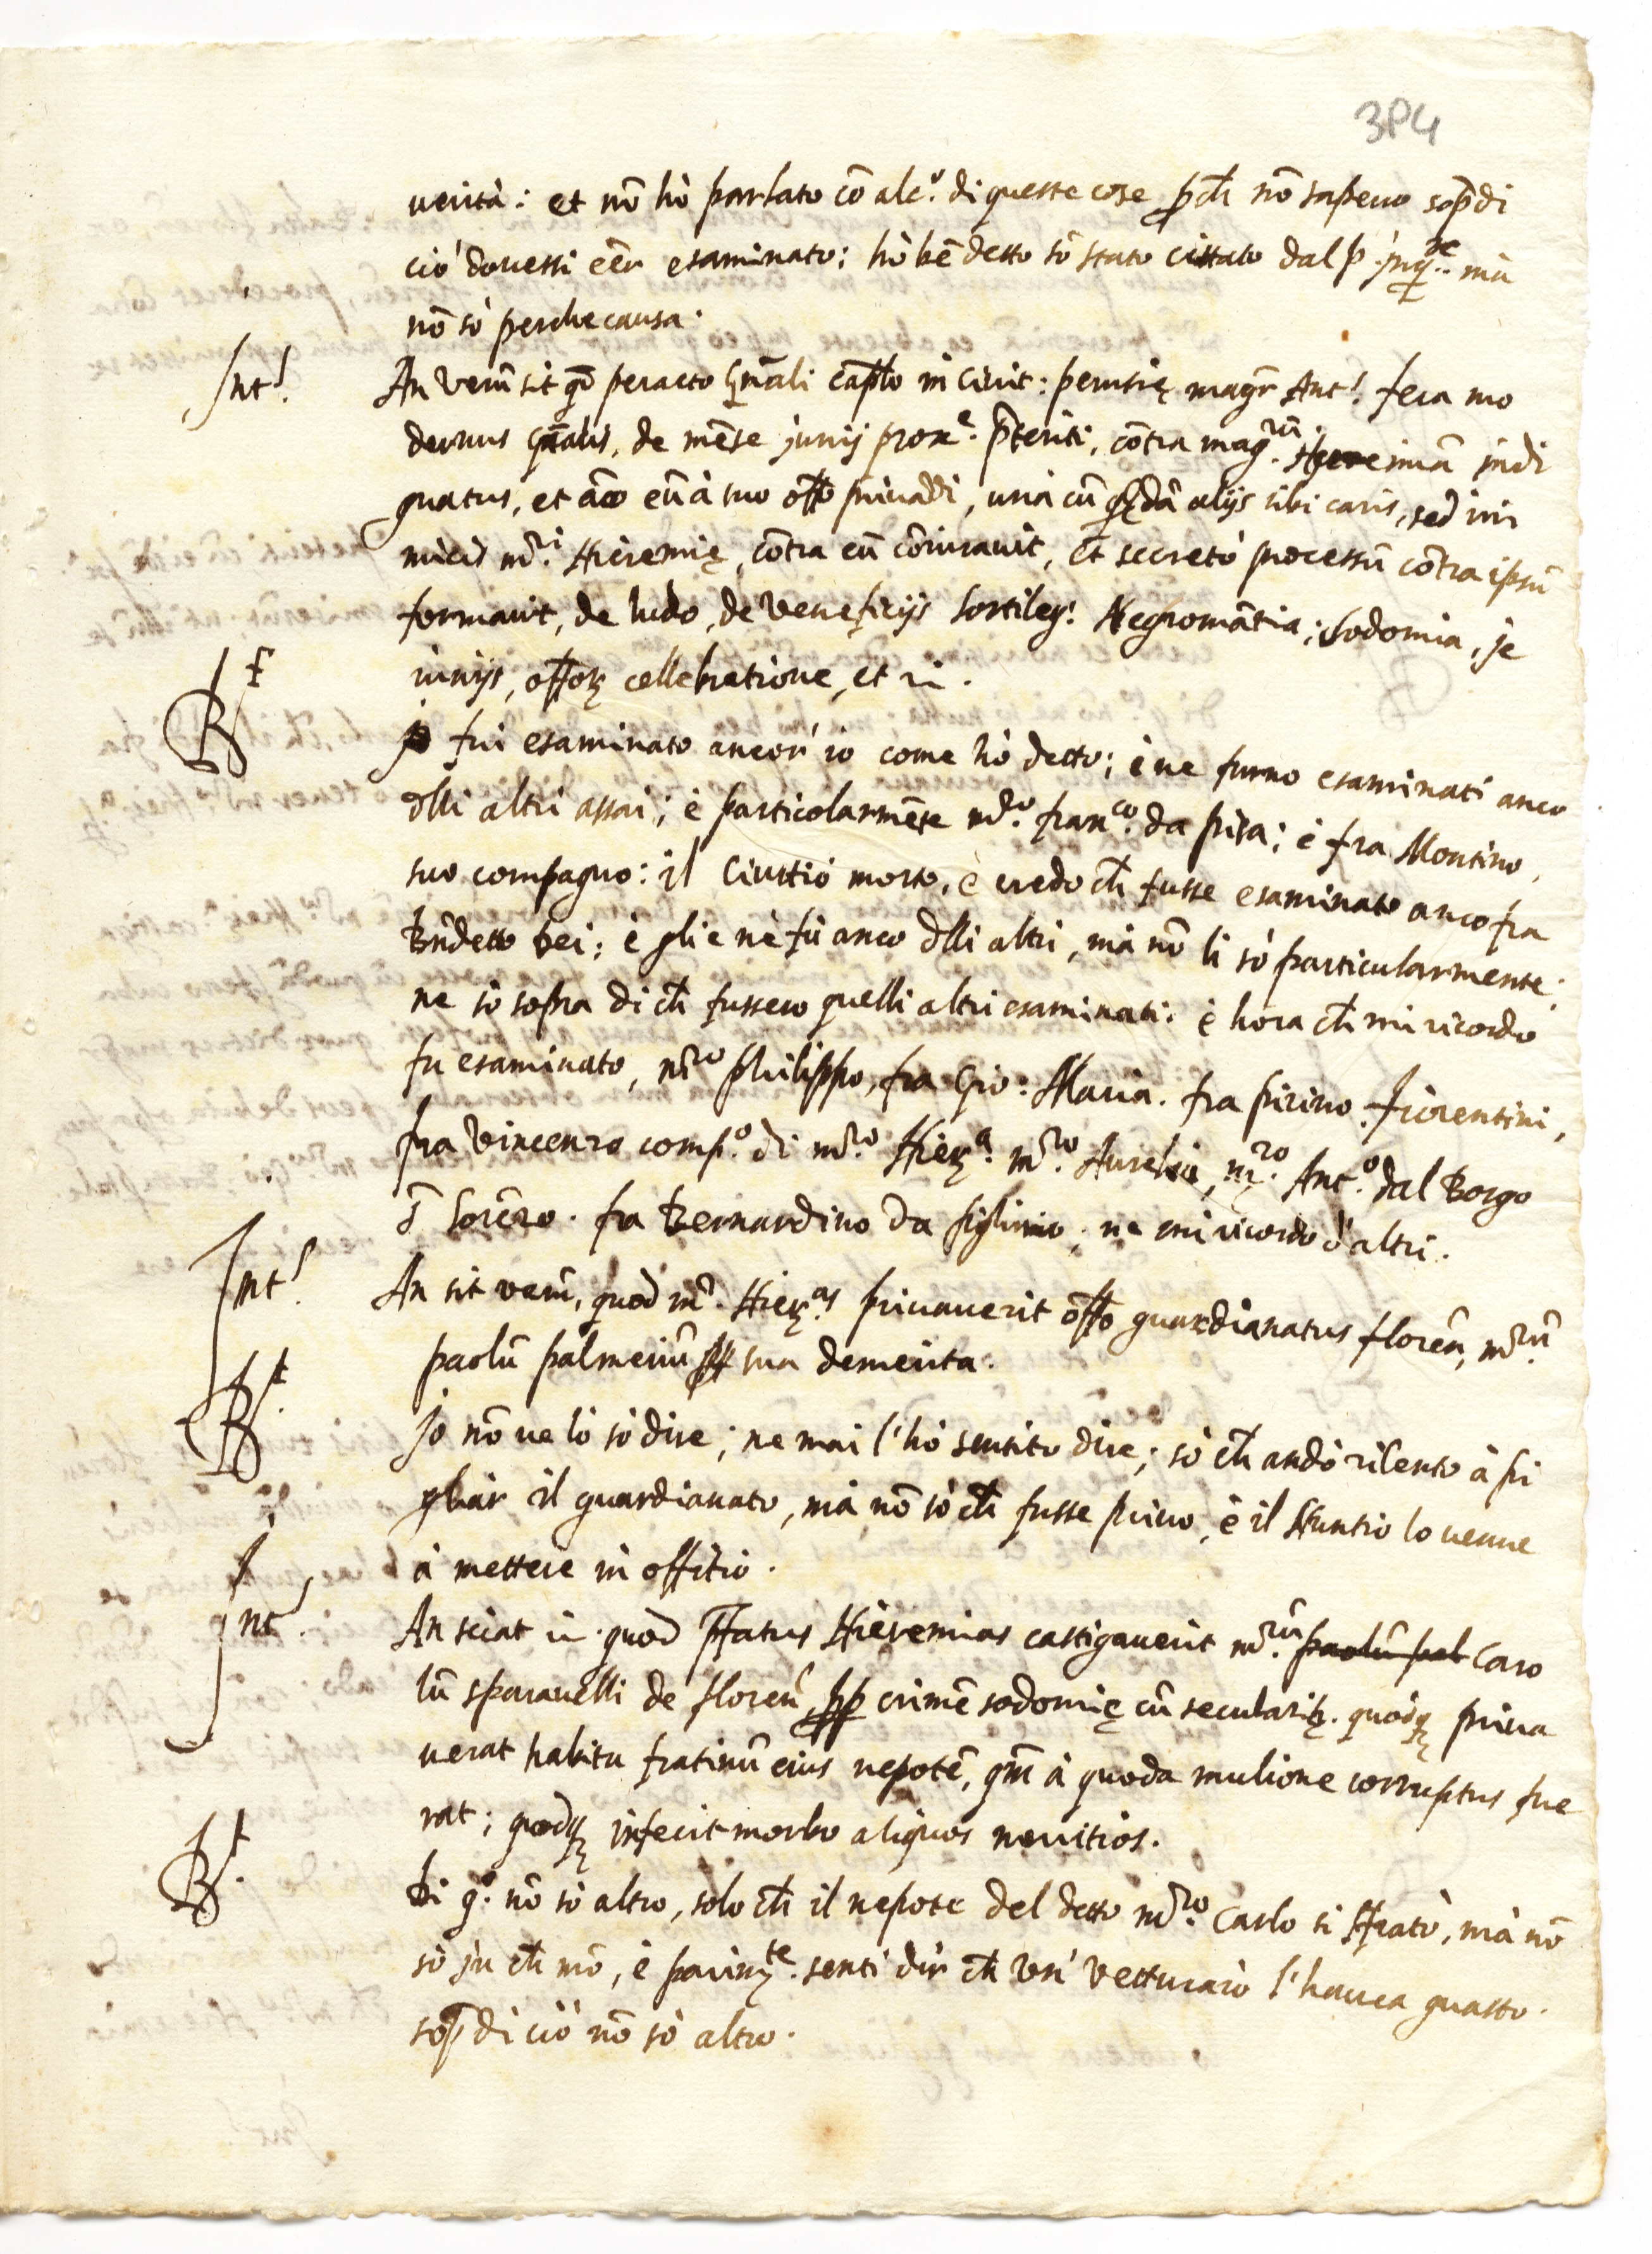 384
uerità: et nō hò parlato cō alc.º di queste cose p̄ch nō sapeuo sop̄ di
ciò douessi eēr esaminato: hò bē detto sō stato cittato dal p. inq.re mà
nō sò perche causa.
Int.s An verū sit qd̄ peracto gn̄ali cap̄lo in Ciuit: perusię magr̄ Ant.s fera mo
dernus gn̄alis, de mēse junij prox.e p̄teriti, cōtra mag.rū Hieremiā indi
gnatus, et aīo eū à suo off̄o priuādi, unà cū qdā alijs sibi caris, sed ini
micis m.ri Hieremię, cōtra eū cōiurauit, et secretò processū cōtra ipsū
formauit, de ludo, de veneficijs sortileg.s Negromātia; sodomia, je
iunijs, off̄orū cellebratione, et in.
R.t Jo fui esaminato ancor' io come hò detto; è ne furno esaminati anco
dlli altri assai; è particolarmēte m.ro fran.co da pisa; è fra Montino,
suo compagno: il Ciuttio morto, è credo ch fusse esaminato anco fra
Bn̄detto bei: è gli è nè fù anco dlli altri, mà nō li sò particularmente;
ne sò sopra di ch fussero quelli altri esaminati: è hora ch mi ricordo
fu esaminato, m.ro philippo, fra Gio: Maria. fra pirino fiorentini,
fra Vincenzo comp.º di m.ro Hier.a m.ro Aurelio, m.ro Ant.º dal Borgo
S Lorēzo. fra Bernardino da figlino; ne mi ricordo d'altri.
Int.s An sit verū, quod m.r Hier.as priuauerit off̄o guardianatus floreñ, m.rū
paolū palmeriū pp sua demerita.
R.t Jo nō ue lò sò dire; ne mai l'hò sentito dire; sò ch andò rilento à pi
gliar il guardianato, mà nō sò ch fusse priuo, è il Nuntio lo uenne
à mettere in offitio.
Int.s An sciat in quod p̄fatus Hieremias castigauerit m.rū paolū pal Caro
lū sparauelli de floreñ, pp crimē sodomię cū secularib. quodq priua
uerat habitu fratinū eius nepotē, qm̄ à quoda mulione corruptus fue
rat; quodq infecit morbo aliquos nouitios.
R.t Di q.º nō sò altro, solo ch il nepote del detto m.ro Carlo si sfratò, mà nō
sò in ch mō, è parim.te senti dir ch vn' vetturaio l'hauea guasto.
sop̄ di ciò nō sò altro.